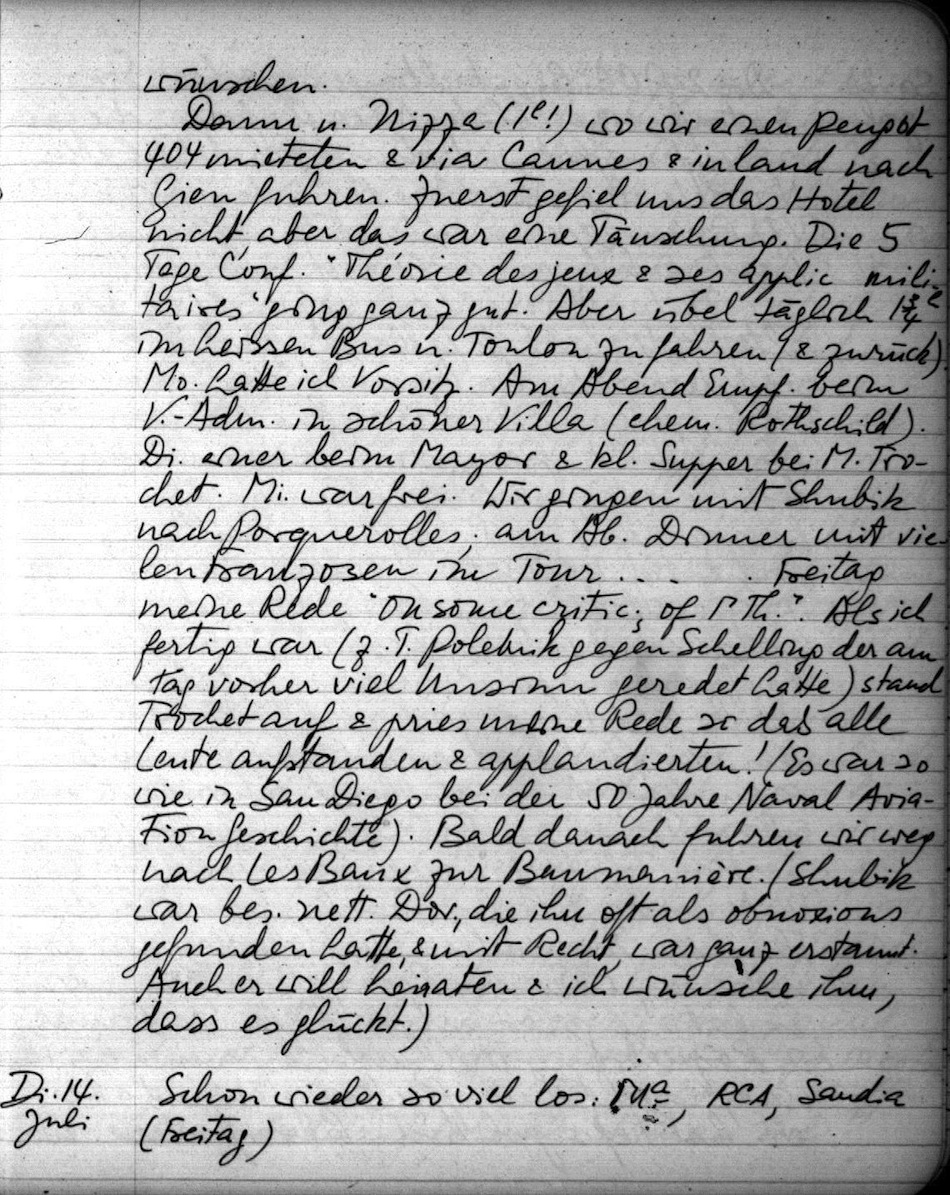 wünschen.
Dann n. Nizza (1e!) wo wir einen Peugot
404 mieteten & via Cannes & inland nach
Gien fuhren. Zuerst gefiel uns das Hotel
nicht, aber das war eine Täuschung. Die 5
Tage Conf. "Théorie des jeux & ses applic mili-
taires" ging ganz gut. Aber übel täglich 1 3/4 e
im heissen Bus n. Toulon zu fahren (& zurück).
Mo. hatte ich Vorsitz. Am Abend Empf. beim
V.-Adm. in schöner Villa (ehem. Rothschild).
Di. einer beim Mayor & kl. Supper bei M. Tro-
chet. Mi. war frei. Wir gingen mit Shubik
nach Porquerolles; am Ab. Dinner mit vie-
len Franzosen im Tour .. . . Freitag
meine Rede "On some critic; of Γ Th.". Als ich
fertig war (z. T. Polemik gegen Schelling der am
Tag vorher viel Unsinn geredet hatte) stand
Trochet auf & pries meine Rede so das alle
Leute aufstanden & applaudierten! (Es war so
wie in San Diego bei der 50 Jahre Naval Avia-
tion Geschichte). Bald danach fuhren wir weg
nach Les Baux zur Baumanière. (Shubik
war bes. nett. Dor., die ihn oft als obnoxious
gefunden hatte, & mit Recht, war ganz erstaunt.
Auch er will heiraten & ich wünsche ihm,
dass es glückt.)
Di. 14. Schon wieder so viel los: Ma, RCA, Sandia
Juli (Freitag)